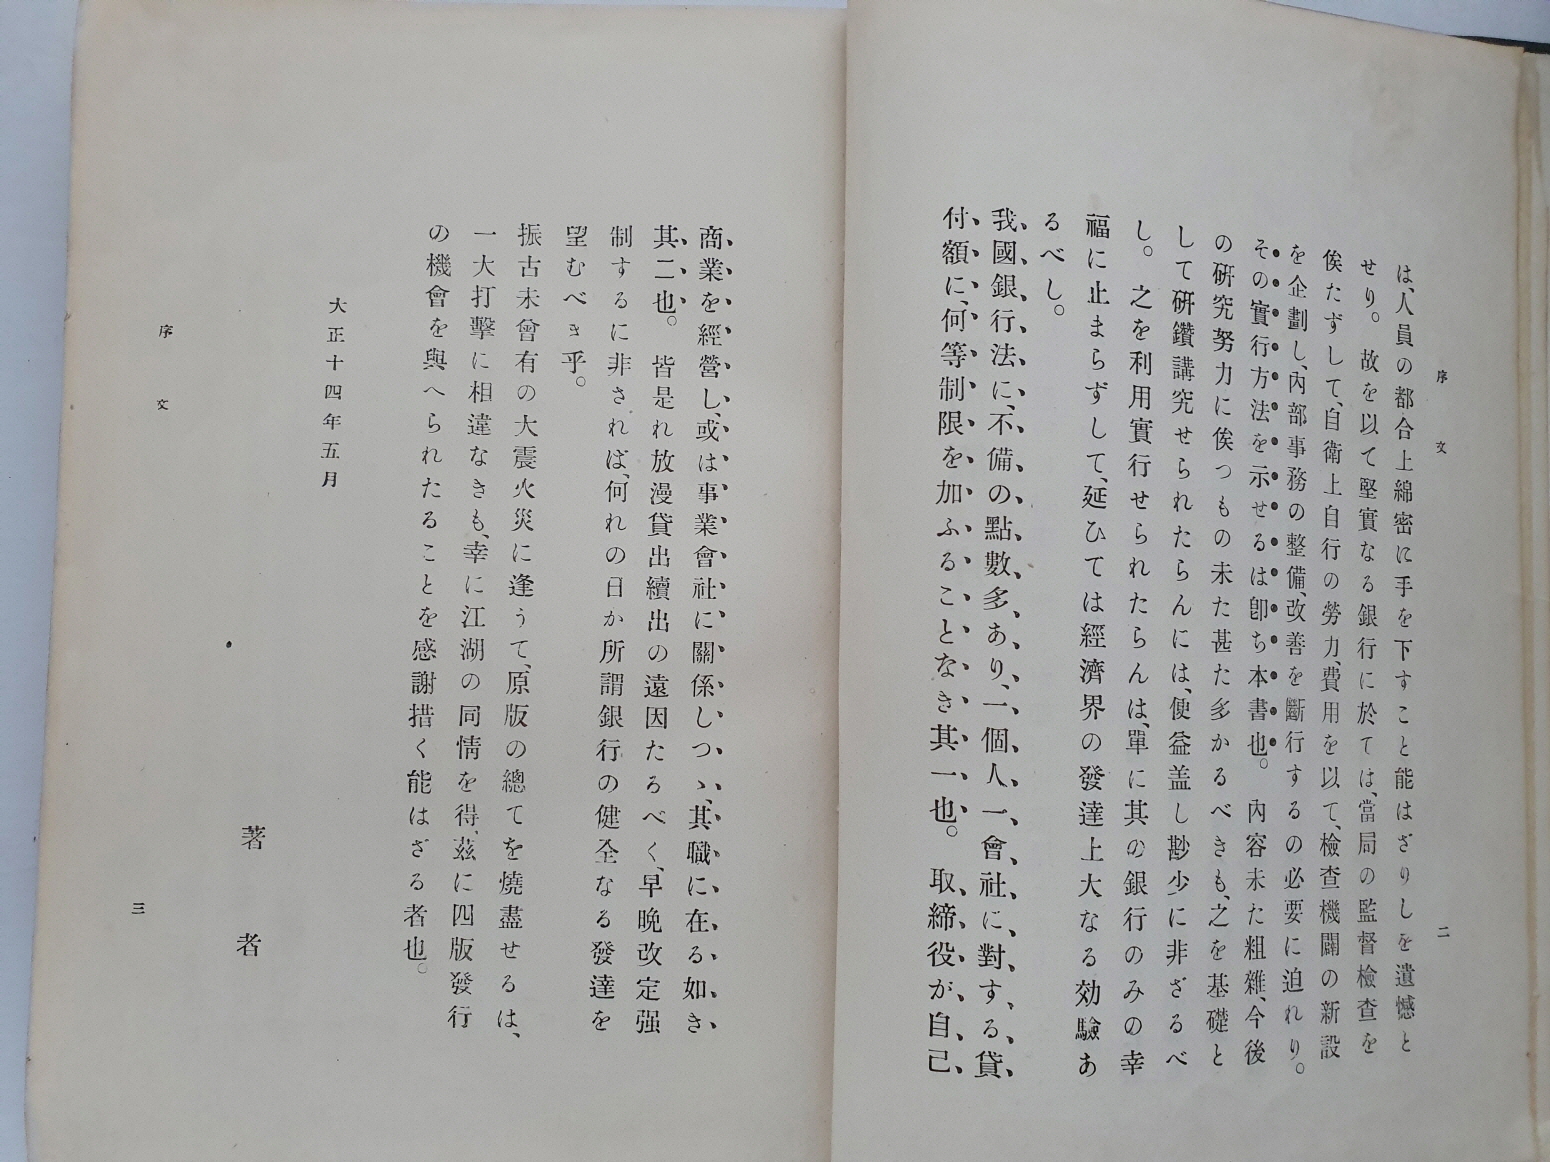 序文
二
は、人員の都合上綿密に手を下すこと能はざりしを遺憾と
せり。故を以て堅實なる銀行に於ては、當局の監督檢査を
俟たずして、自衛上自行の勞力、費用を以て、檢查機關の新設
を企劃し、內部事務の整備、改善を斷行するの必要に迫れり。
その實行方法を示せるは卽ち本書也。內容未た粗雜、今後
の硏究努力に俟つもの未た甚た多かるべきも、之を基礎と
して硏鑽講究せられたらんには、便益盖し尠少に非ざるべ
し。之を利用實行せられたらんは、單に其の銀行のみの幸
福に止まらずして、延ひては經濟界の發達上大なる効驗あ
るべし。
我國銀行法に、不備の點數多あり、一個人一會社に對する貸
付額に、何等制限を加ふることなき其一也。取締役が自己
商業を經營し、或は事業會社に關係しつゝ、其職に在る如き
其二也。皆是れ放漫貸出續出の遠因たるべく、早晩改定强
制するに非されば、何れの日か所謂銀行の健全なる發達を
望むべき乎。
振古未曾有の大震火災に逢うて、原版の總てを燒盡せるは、
一大打擊に相違なきも、幸に江湖の同情を得、玆に四版發行
の機會を與へられたることを感謝措く能はざる者也。
大正十四年五月
著者
序文
三